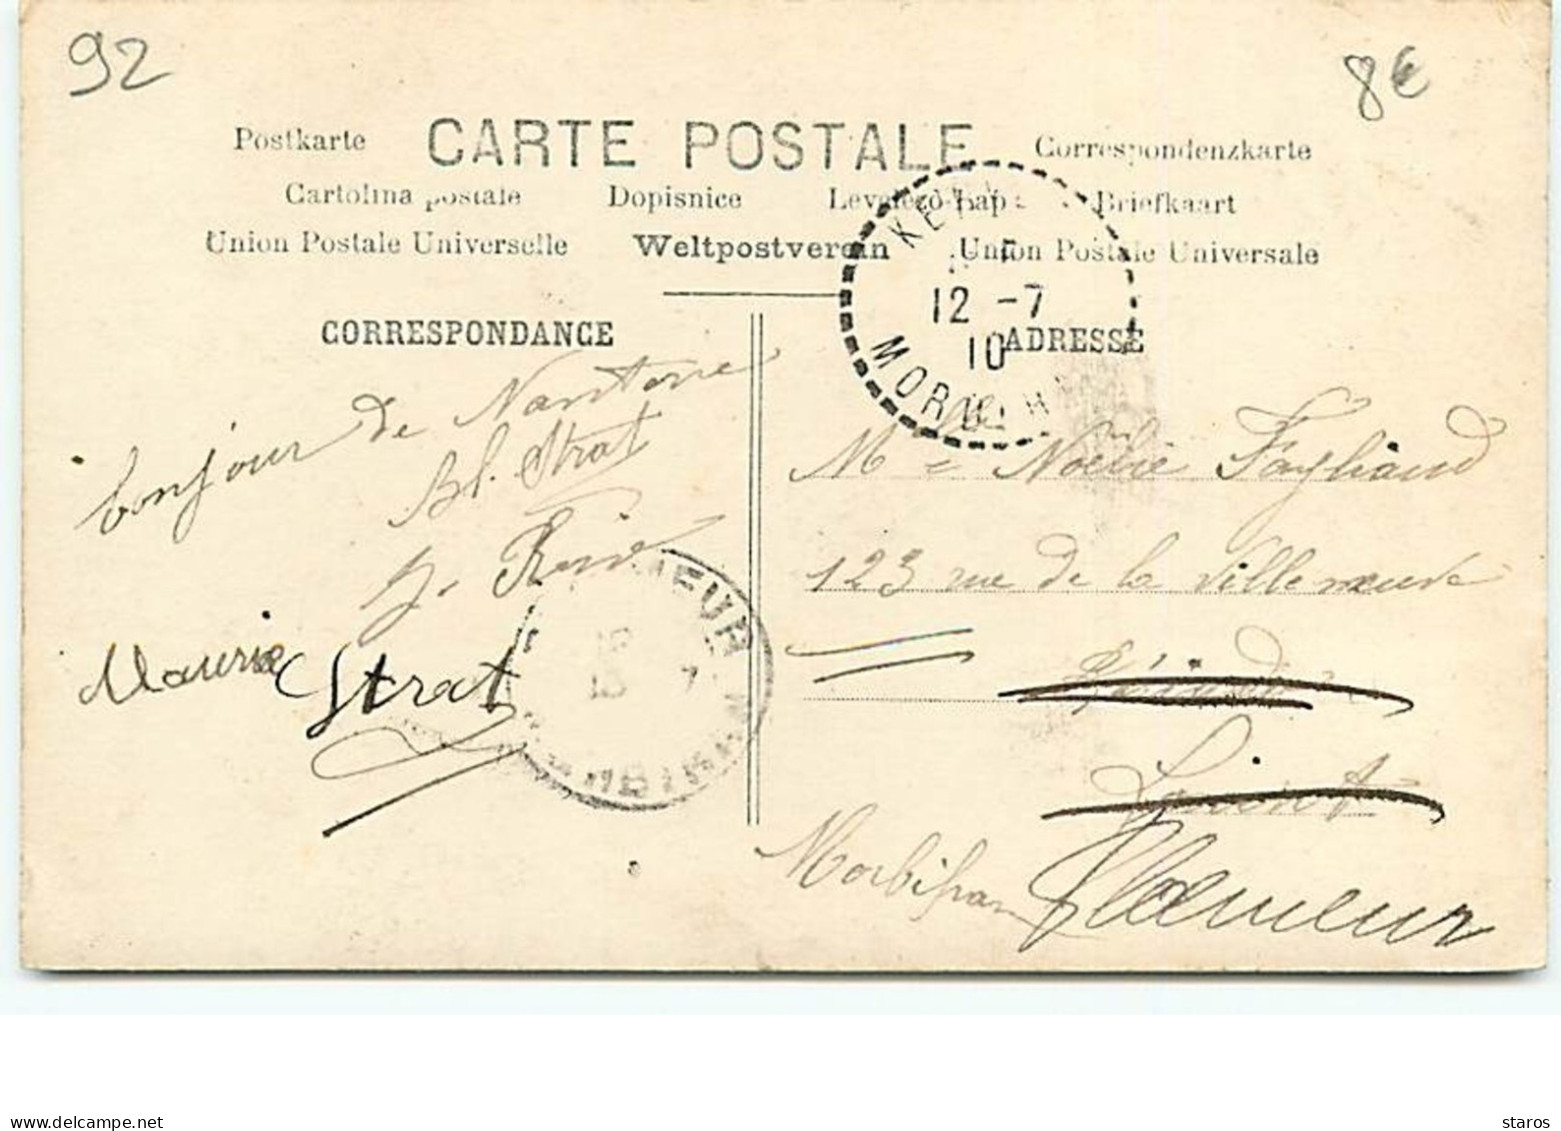 92
8€
Postkarte CARTE POSTALE Correspondenzkarte
Cartolina postale Dopisnice Levelező-Lap Briefkaart
Union Postale Universelle Weltpostverein Union Postale Universale
CORRESPONDANCE
ADRESSE
12 -7
10
MORBIH
bonjour de Nanterre
Bl. Strat
Maurice Strat
Mlle Noëlie Fayliaud
123 rue de la Villeneuve
Lorient
Morbihan Ploemeur
delcampe.net
staros